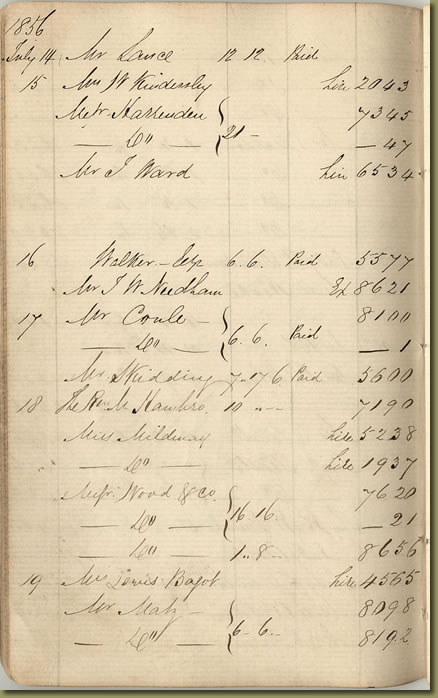 1856
July 14 Mr Lance 12 12. Paid
15 Mrs W Kindersley hire 2043
Messrs Harrenden 7345
— Do — 21 — — 47
Mr J Ward hire 6534
16 Walker — Esq 6. 6. Paid 5577
Mr J W Needham Ex 8621
17 Mr — 8100
— Do — 6. 6. Paid — 1
Mr Skidding 7. 17 6 Paid 5600
18 The Rev. M. Hambro 10 .. -- 7190
Miss Mildmay hire 5238
— Do — hire 1937
Messrs Wood & Co. 7620
— Do — 16. 16. — 21
— Do — 1.. 8 — 8656
19 Mrs Lewis Bagot hire 4565
Mr — 8098
— Do — 6. 6. — 8192